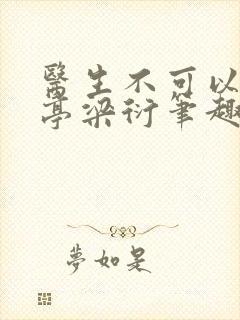 醫生不可以
亭梁衍筆趣
夢如是